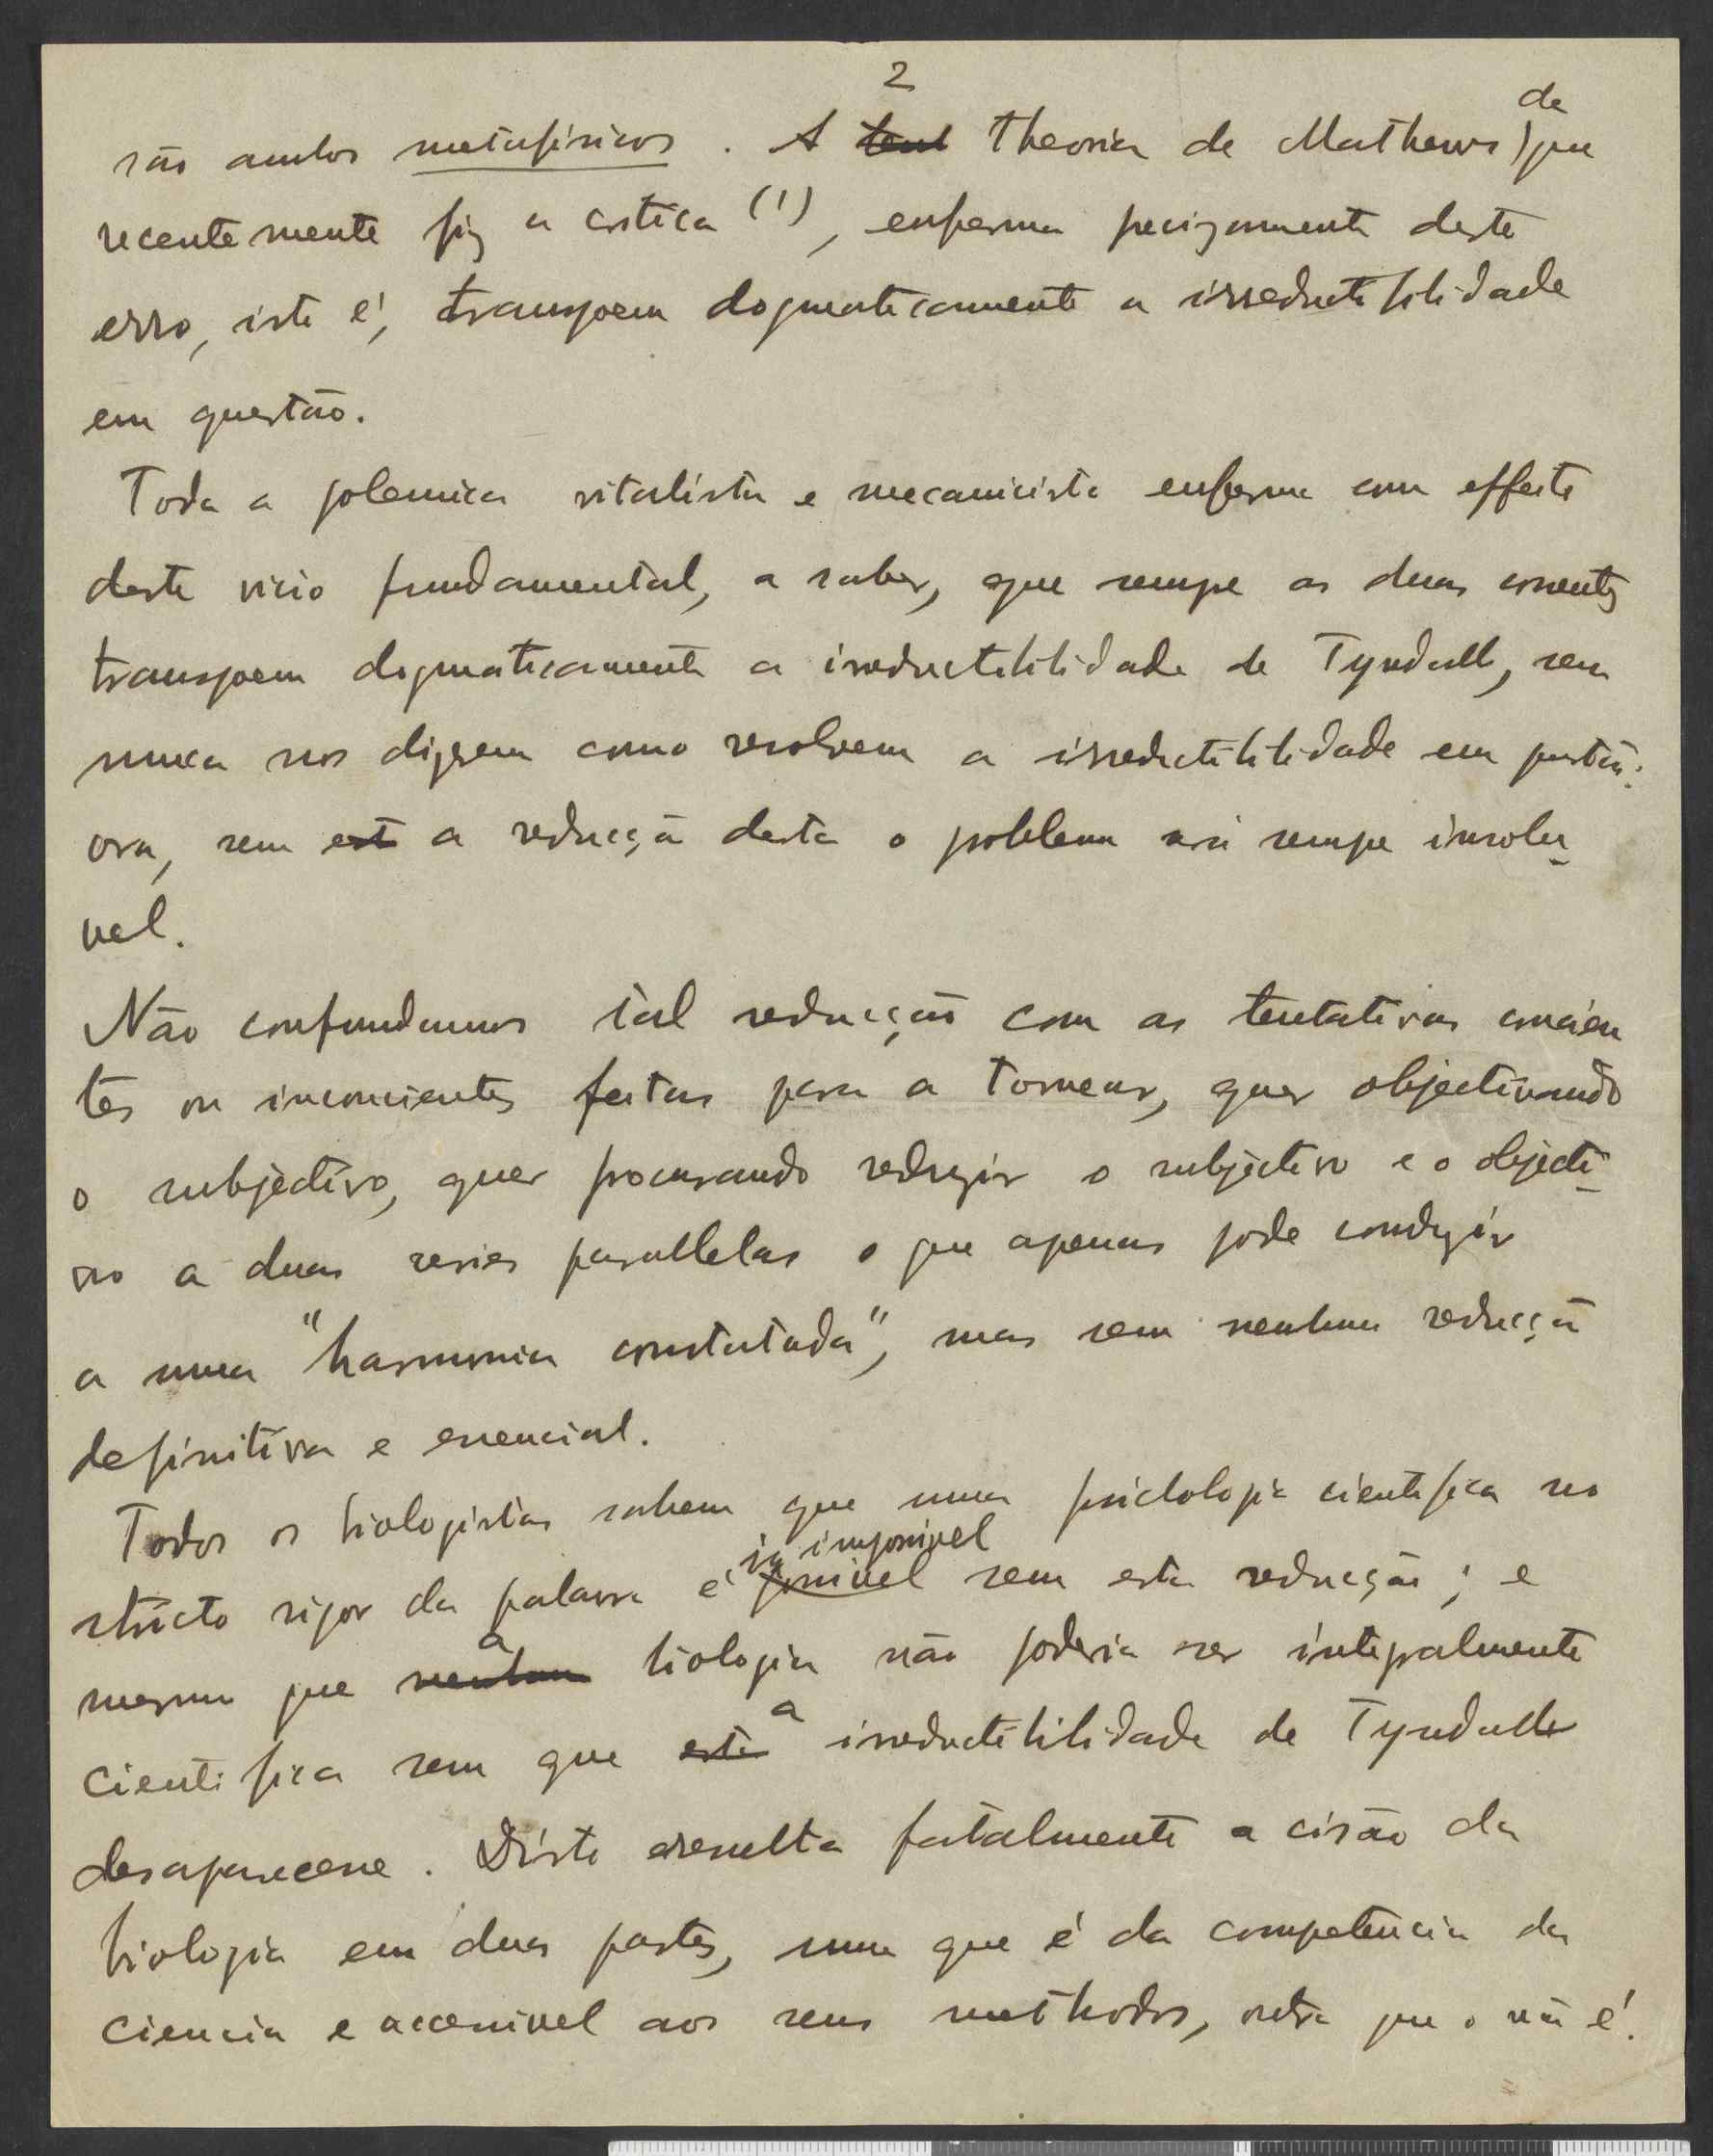 2
são ambos metafisicos. A theoria de Mathews, de que
recentemente fiz a critica (1), enferma precizamente deste
erro, isto é, transpoem dogmaticamente a irreductibilidade
em questão.
Toda a polemica vitalista e mecanicista enferma com effeito
deste vicio fundamental, a saber, que sempre as duas correntes
transpoem dogmaticamente a irreductibilidade de Tyndall, sem
nunca nos dizerem como resolvem a irreductibilidade em questão:
ora, sem est a reducção desta o problema será sempre insolu-
vel.
Não confundamos tal reducção com as tentativas conscien
tes ou inconscientes feitas para a tornear, quer objectivando
o subjectivo, quer procurando reduzir o subjectivo e o objecti-
vo a duas series parallelas o que apenas pode conduzir
a uma "harmonia constatada", mas sem nenhuma reducção
definitiva e essencial.
Todos os biologistas sabem que uma psicologia cientifica no
stricto rigor da palavra é impossivel possivel sem esta reducção; e
mesmo que nenhum a biologia não poderia ser integralmente
cientifica sem que esta a irreductibilidade de Tyndall
desaparecesse. Disto resulta fatalmente a cisão da
biologia em duas partes, uma que é da competencia da
ciencia e accessivel aos seus methodos, outra que o não é.